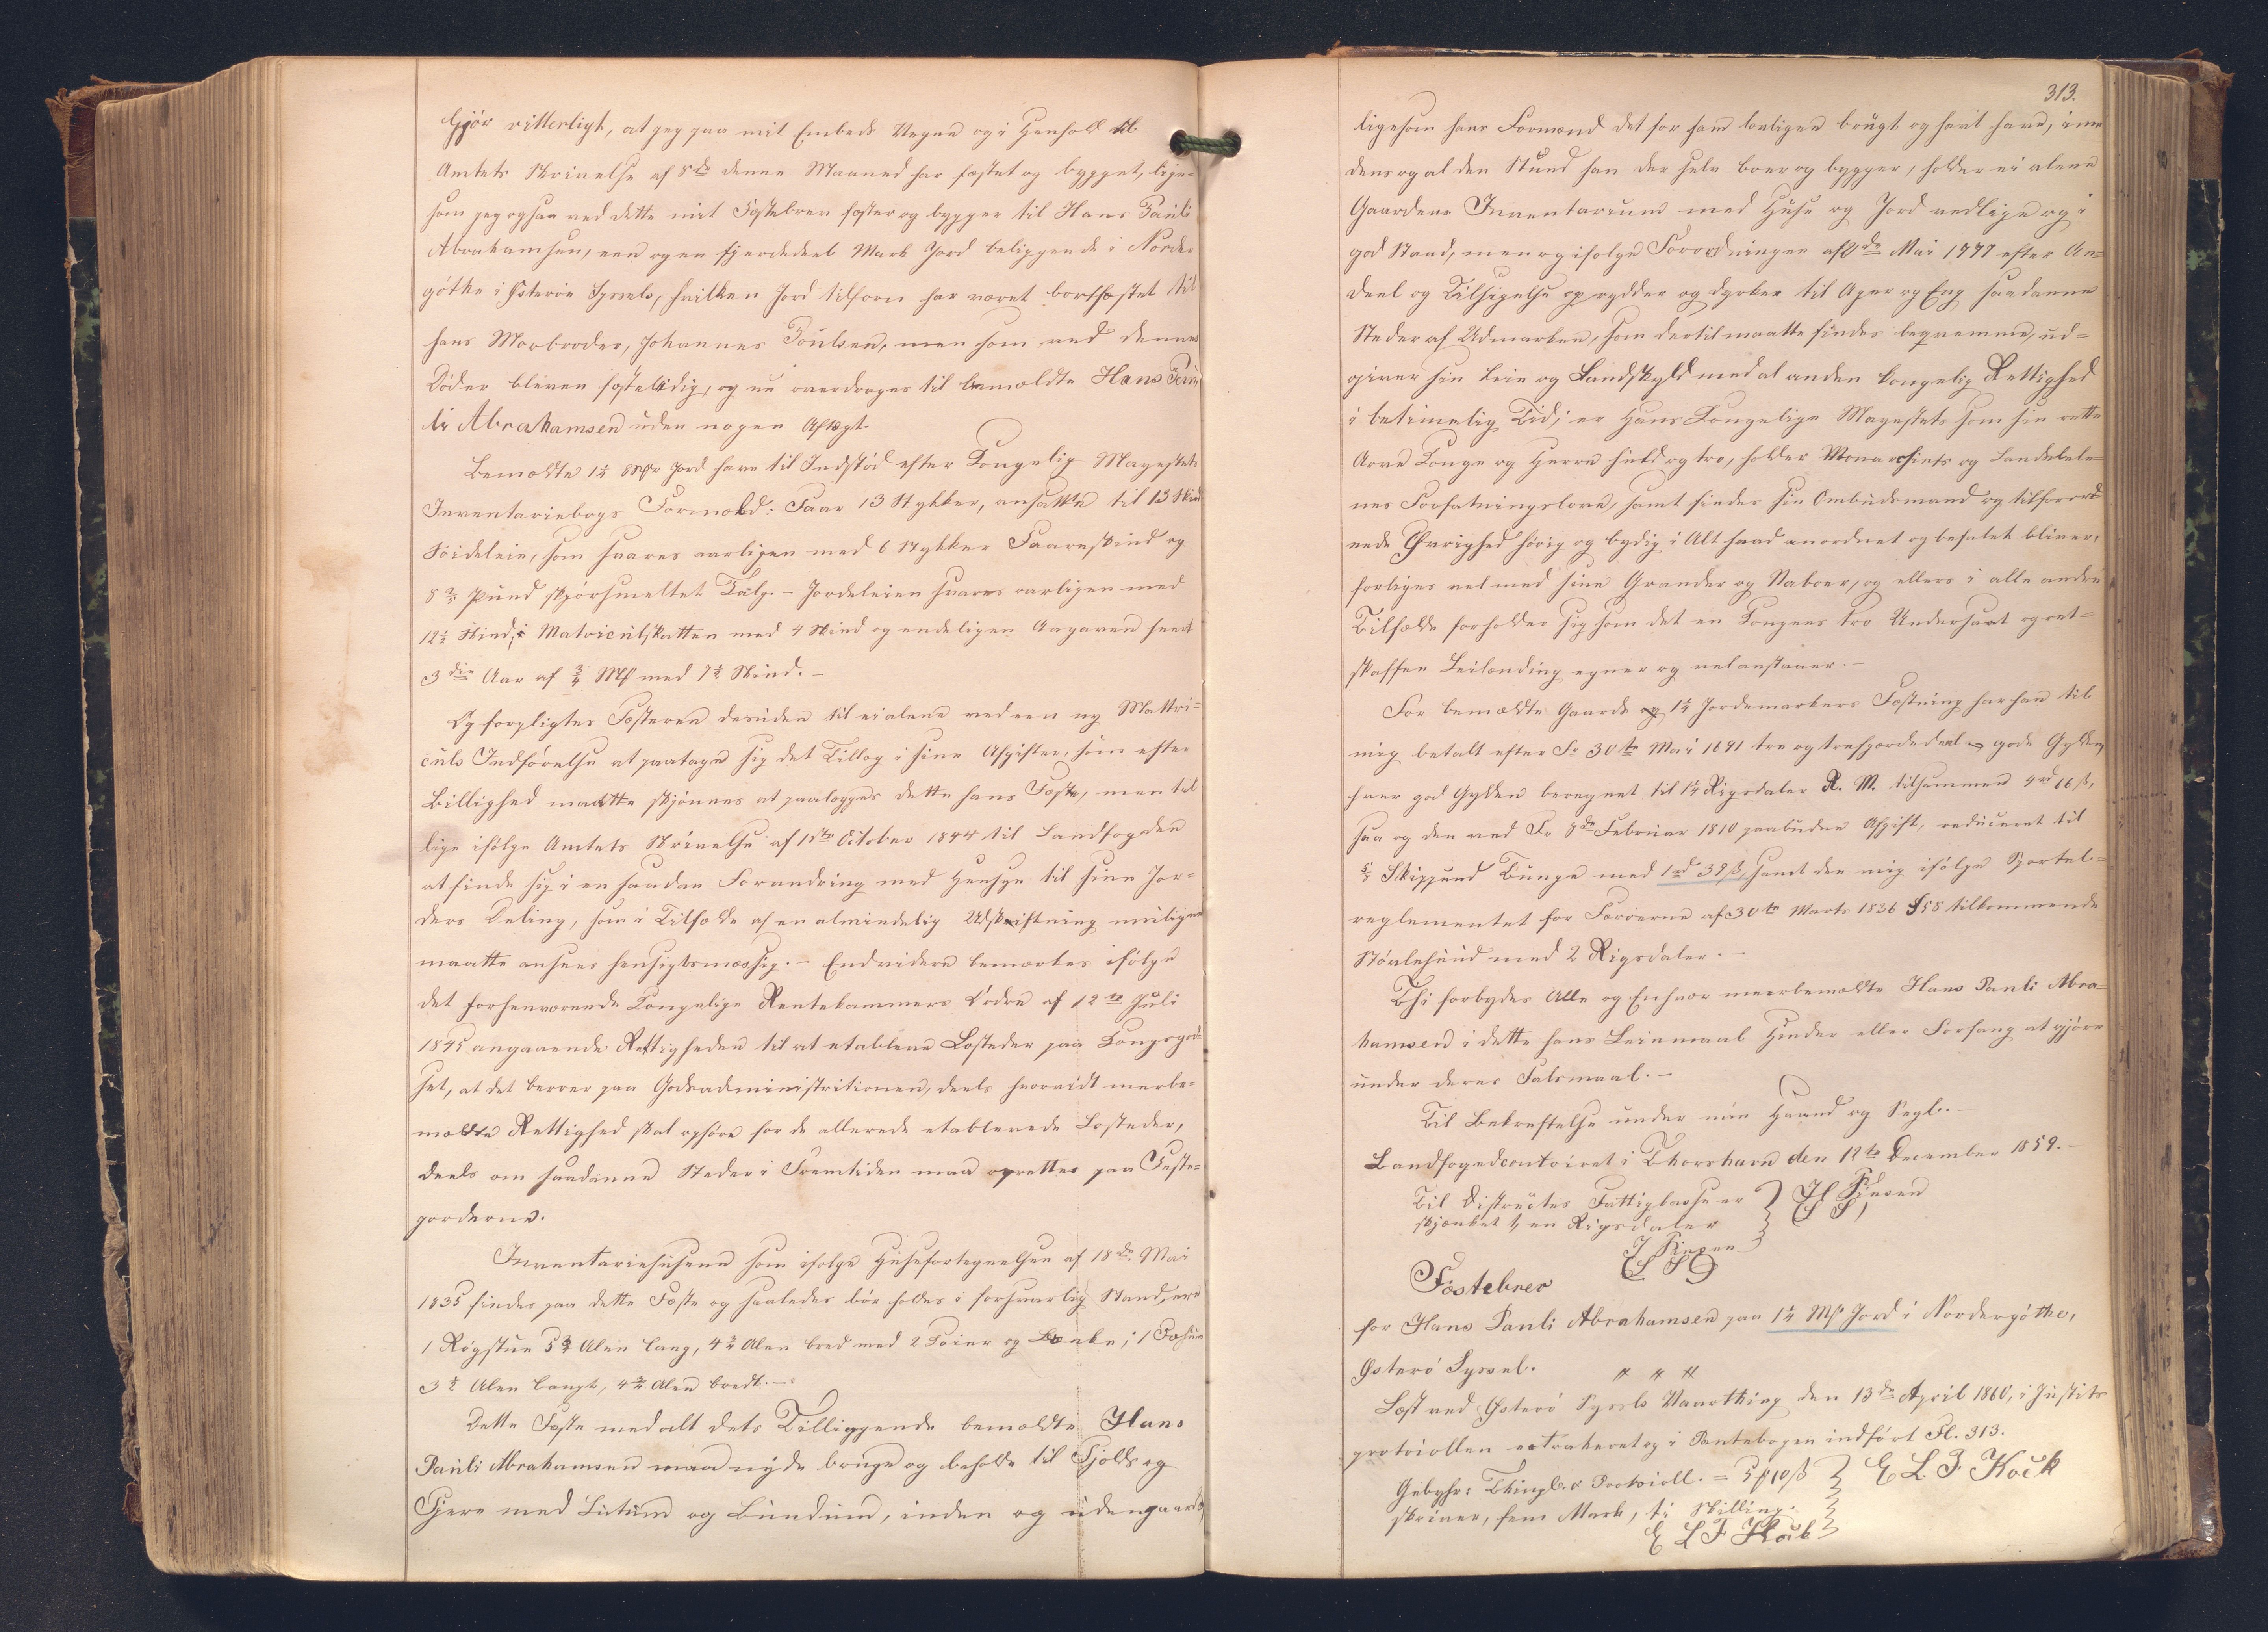 Gjör vitterligt, at jeg paa mit Embeds Vegne og i Henhold til
Amtets Skrivelse af 8de denne Maaned har fæstet og bygget, lige-
som jeg ogsaa ved dette mit Fæstebrev fæster og bygger til Hans Pauli
Abrahamsen, een og en fjerdedeel Mark Jord beliggende i Norder
göthe i Österöe Syssels, hvilken Jord tilforn har været bortfæstet til
hans Morbroder, Johannes Poulsen, men som ved dennes
Döder bleven fæsteledig, og nu overdrages til bemældte Hans Pau
li Abrahamsen uden nogen Aftægt.
Bemældte 1¼ Mrk Jord have til Indstöd efter Kongelig Mayestets
Inventariebogs Formæld: Faar 13 Stykker, ansatte til 13 Skind
Föideleie, som svares aarligen med 6 Stykker Faareskind og
8 Pund skjörsmeltet Talg. - Jordeleien svares aarligen med
12½ Skind; i Matriculskatten med 4 Skind og endeligen Aagaven hvert
3die Aar af ¾ Mk med 7½ Skind. -
Og forpligtes Fæsteren desuden til ei alene ved een ny Mattri-
culs Indförelse at paatage sig det Tillæg i sine Afgifter, som efter
Billighed maatte skjönnes at paalægges dette hans Fæste, men til
lige ifölge Amtets Skrivelse af 1ste October 1844 til Landfogden
at finde sig i en saadan Forandring med Hensyn til sine Jor-
ders Deling, som i Tilfælde af en almindelig Udskiftning muligen
maatte ansees hensigtsmæssig. - Endvidere bemærkes ifölge
det forhenværende Kongelige Rentekammers Ordre af 12te Juli
1845 angaaende Rettigheden til at etablere Bosteder paa Kongsgod
set, at det beroer paa Godsadministritionen, deels hvorvidt merbe-
mældte Rettighed skal ophöre for de allerede etablerede Bosteder,
deels om saadanne Steder i Fremtiden maa oprettes paa Fæste-
gorderne.
Inventariehusene som ifölge Husefortegnelsen af 18de Mai
1835 findes paa dette Fæste og saaledes bör holdes i forsvarlig Stand, ere
1 Rögstue 5¾ Alen lang, 4¼ Alen bred med 2 Döier og Bænke; 1
3½ Alen langt, 4¾ Alen bredt. -
Dette Fæste med alt dets Tilliggende bemældte Hans
Pauli Abrahamsen maa nyde bruge og beholde til Fjelds og
Fjere med Lutum og Lundum, inden og udengaards,
313.
ligesom hans Formænd det for ham lovligen brugt og havt have, imi
dens og al den Stund han der selv boer og bygger, holder ei alene
Gaardens Inventarium med Huse og Jord vedlige og i
god Stand, men og ifölge Forordningen af de Mai 1777 efter An-
deel og Tilsigelse oprydder og dyrker til Ager og Eng saadanne
Steder af Udmarken, som dertil maatte findes beqvemme, ud-
giver sin Leie og Landskyld med al anden kongelig Rettighed
i betimelig Tid; er Hans Kongelige Mayestets som sin rette
Arve Konge og Herre huld og tro, holder Monarchiets og Landsdele-
nes Forfatningslove, samt findes sin Ombudsmand og tilforord
nede Övrighed hörig og lydig i Alt hvad anordnet og befalet bliver,
forliges vel med sine Grander og Naboer, og ellers i alle andre
Tilfælde forholder sig som det en Kongens tro Undersaat og ret-
skaffen Leilænding egner og vel anstaaer. -
For bemældte Gaard og 1¼ Jordemarkers Fæstning har han til
mig betalt efter Fr 30te Mai 1691 tre og trefjerdedeel gode Gylden,
hver god Gylden beregnet til 1¼ Rigsdaler R. M. tilsammen 4 rd 66 ß,
saa og den ved Fr 8de Februar 1810 paabudne Afgift, reduceret til
Skippund Bunge med 1 rd 39 ß, samt den mig ifölge Sportel-
reglementet for Færöerne af 30te Marts 1836 §58 tilkommende
Stövlehund med 2 Rigsdaler. -
Thi forbydes Alle og Enhver meerbemældte Hans Pauli Abra-
hamsen i dette hans Leiemaal Hinder eller Forfang at gjöre
under deres Falsmaal. -
Til Bekræftelse under min Haand og Segl. -
Landfogedcontoiret i Thorshavn den 12te December 1859. -
Til Districtes Fattigkasse er
skjænket 1, en Rigsdaler
Fæstebrev
for Hans Pauli Abrahamsen paa 1¼ Mk Jord i Nordergöthe,
Österö Syssel.
Læst ved Österö Syssels Vaarthing den 13de April 1860, i Justits
protocollen extraheret og i Pantebogen indfört Fl. 313.
Gebyhr: Thingl. & Protocoll. = 5 10 ß
skriver, fem Mark, ti Skilling.
E L F Kock
E L F Kock